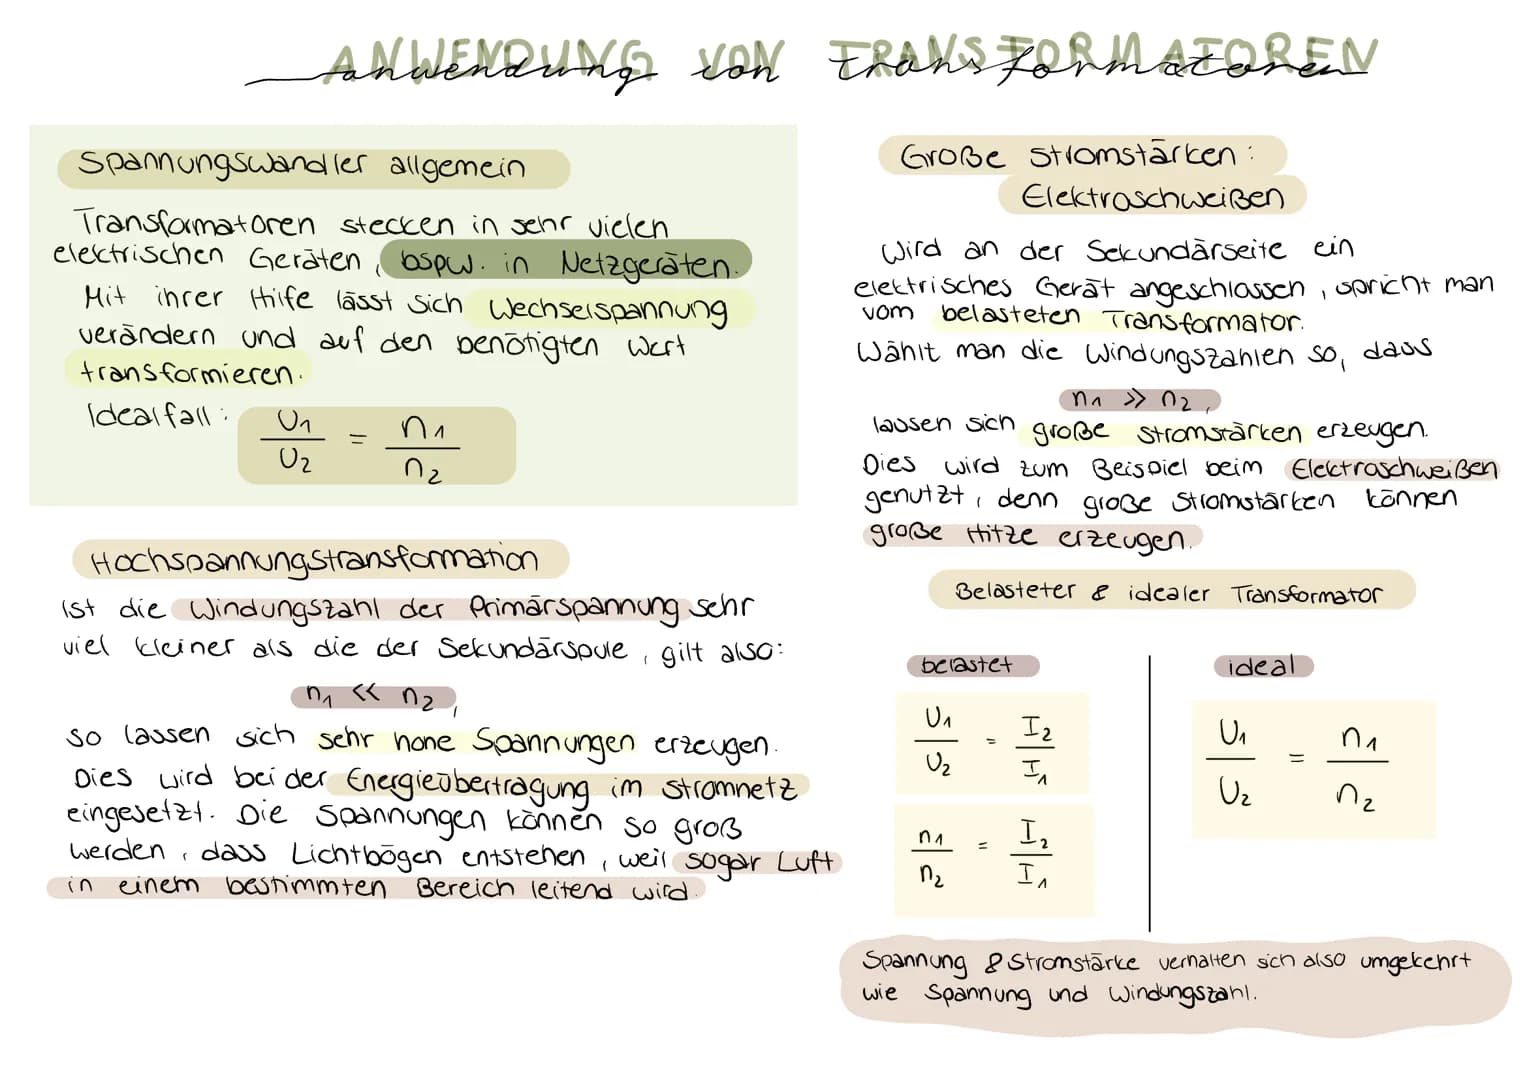 ANWENDUNG VON TRANSFORMATOREN
anwendung von Transformatoren
Spannungswandler allgemein
Transformatoren stecken in sehr vielen
elektrischen Geräten, bspw. in Netzgeräten.
Mit ihrer Hilfe lässt sich Wechselspannung
verändern und auf den benötigten Wert
transformieren.
Idealfall: U₁/U₂ = n₁/n₂
Hochspannungstransformation
Ist die Windungszahl der Primärspannung sehr
viel kleiner als die der Sekundärspule, gilt also:
n₁ << n₂,
so lassen sich sehr hohe Spannungen erzeugen.
Dies wird bei der Energieübertragung im Stromnetz
eingesetzt. Die Spannungen können so groß
werden, dass Lichtbögen entstehen, weil sogar Luft
in einem bestimmten Bereich leitend wird.
Große Stromstärken:
Elektroschweißen
Wird an der Sekundärseite ein
elektrisches Gerät angeschlossen, spricht man
vom belasteten Transformator.
Wählt man die Windungszahlen so, dass
n₁ >> n₂,
lassen sich große Stromstärken erzeugen.
Dies wird zum Beispiel beim Elektroschweißen
genutzt, denn große Stromstärken können
große Hitze erzeugen.
Belasteter & idealer Transformator
belastet
U₁/U₂ = I₂/I₁
n₁/n₂ = I₂/I₁
ideal
U₁/U₂ = n₁/n₂
Spannung & Stromstärke verhalten sich also umgekehrt
wie Spannung und Windungszahl.